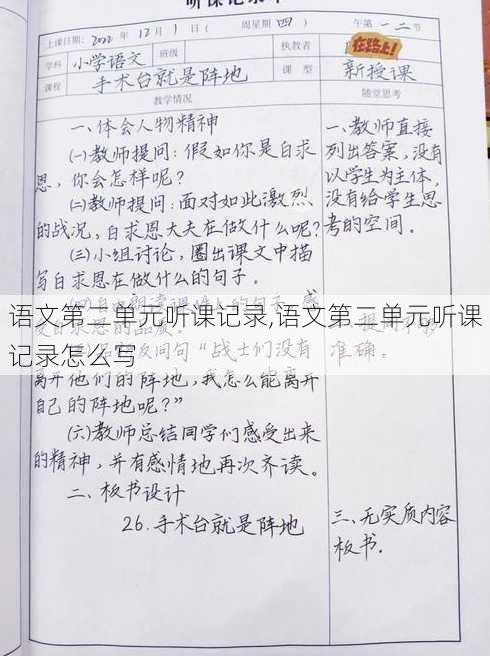 听课记录本
上课日期: 2022 年 12 月 1 日 ( 周星期 四 ) 午第 一 二 节
学科 小学语文 班级 执教者 在路上!
课程 手术台就是阵地 课 型 新授课
教学情况 随堂思考
一、体会人物精神
(一)教师提问:假如你是白求
恩,你会怎样呢?
(二)教师提问:面对如此激烈
的战况,白求恩大夫在做什么呢?
(三)小组讨论,圈出课文中描
写白求恩在做什么的句子。
语文第二单元听课记录,语文第二单元听课
记录怎么写
离开他们的阵地,我怎么能离开
自己的阵地呢?”
(六)教师总结同学们感受出来
的精神,并有感情地再次齐读。
二、板书设计
26.手术台就是阵地
一、教师直接
列出答案,没有
以学生为主体,
没有给学生思
考的空间。
准确。
三、无实质内容
板书.